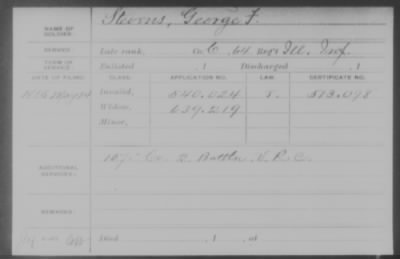 NAME OF SOLDIER: Stevens, George F.
SERVICE: Late rank, Co. C, 64 Reg't Ill. Inf.
TERM OF SERVICE: Enlisted , 1 Discharged , 1
DATE OF FILING. CLASS. APPLICATION NO. LAW. CERTIFICATE NO.
Invalid, 540.024
Widow, 639.219
Minor,
ADDITIONAL SERVICES: Co. 2 Battn V.R.C.
REMARKS:
Died , 1 , at